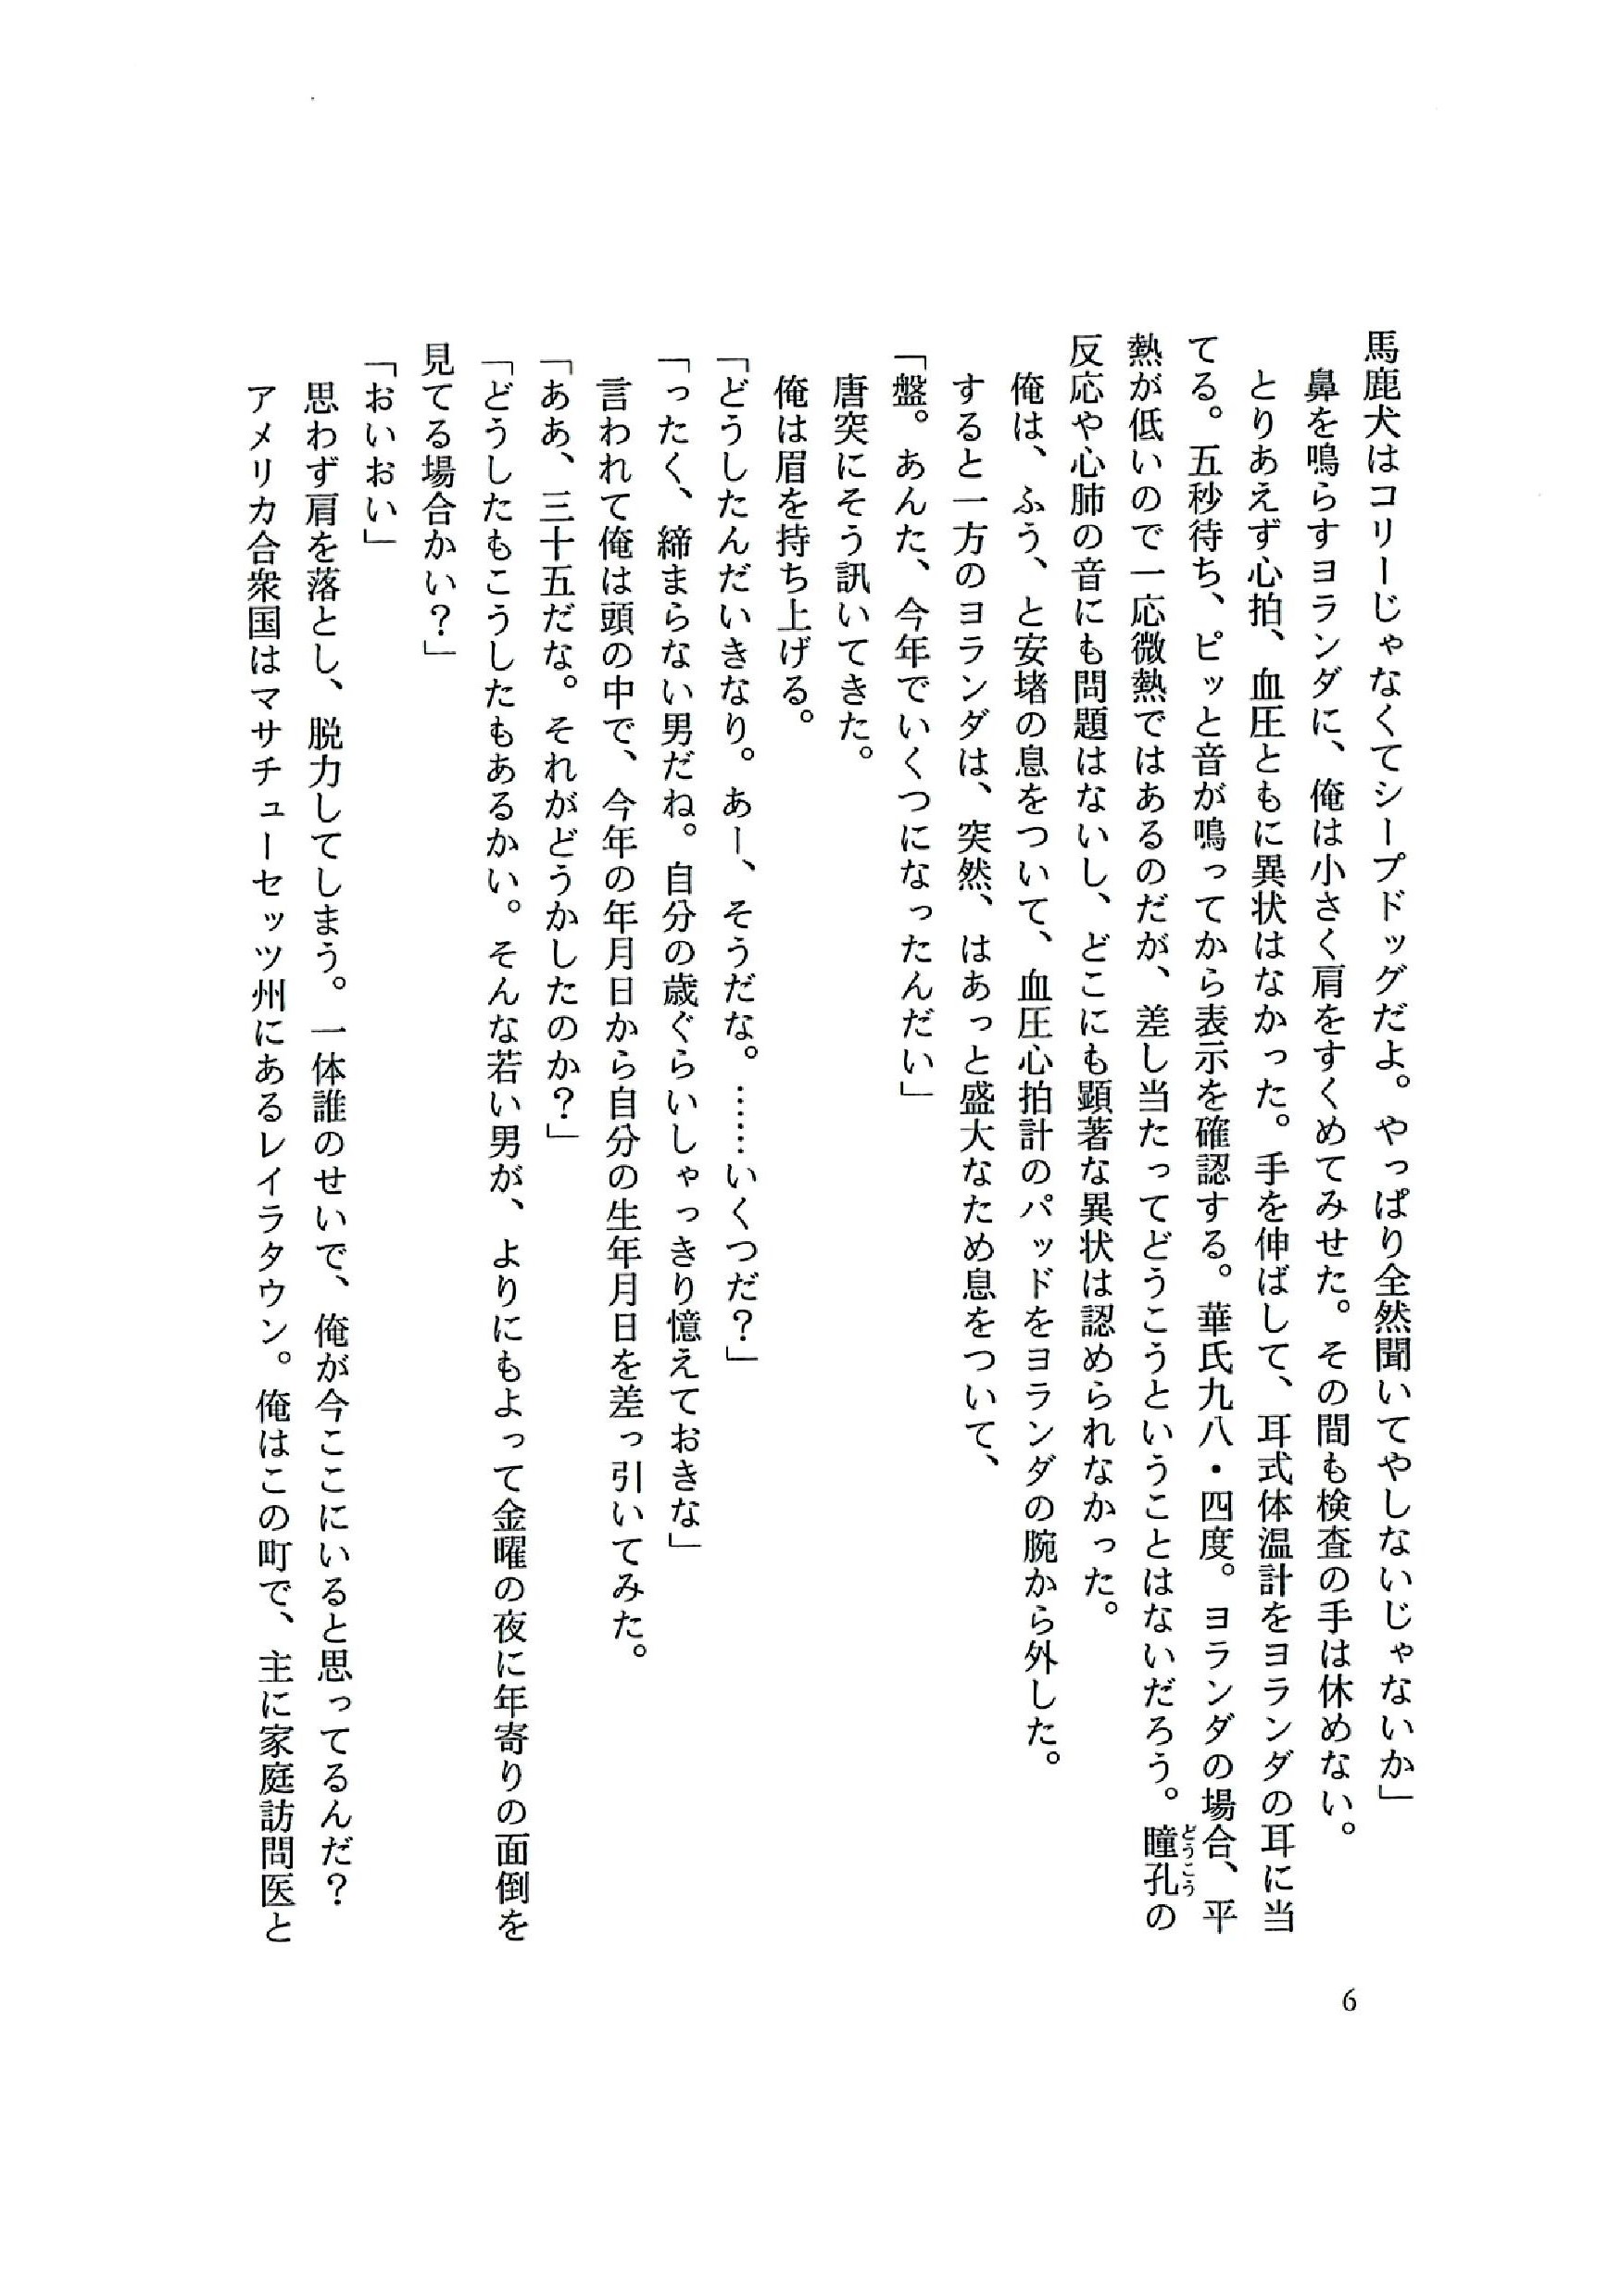 馬鹿犬はコリーじゃなくてシープドッグだよ。やっぱり全然聞いてやしないじゃないか」
鼻を鳴らすヨランダに、俺は小さく肩をすくめてみせた。その間も検査の手は休めない。
とりあえず心拍、血圧ともに異状はなかった。手を伸ばして、耳式体温計をヨランダの耳に当
てる。五秒待ち、ピッと音が鳴ってから表示を確認する。華氏九八・四度。ヨランダの場合、平
熱が低いので一応微熱ではあるのだが、差し当たってどうこうということはないだろう。瞳孔の
どうこう
反応や心肺の音にも問題はないし、どこにも顕著な異状は認められなかった。
俺は、ふう、と安堵の息をついて、血圧心拍計のパッドをヨランダの腕から外した。
すると一方のヨランダは、突然、はあっと盛大なため息をついて、
「盤。あんた、今年でいくつになったんだい」
唐突にそう訊いてきた。
俺は眉を持ち上げる。
「どうしたんだいきなり。あー、そうだな。……いくつだ？」
「ったく、締まらない男だね。自分の歳ぐらいしゃっきり憶えておきな」
言われて俺は頭の中で、今年の年月日から自分の生年月日を差っ引いてみた。
「ああ、三十五だな。それがどうかしたのか？」
「どうしたもこうしたもあるかい。そんな若い男が、よりにもよって金曜の夜に年寄りの面倒を
見てる場合かい？」
「おいおい」
思わず肩を落とし、脱力してしまう。一体誰のせいで、俺が今ここにいると思ってるんだ？
アメリカ合衆国はマサチューセッツ州にあるレイラタウン。俺はこの町で、主に家庭訪問医と
6